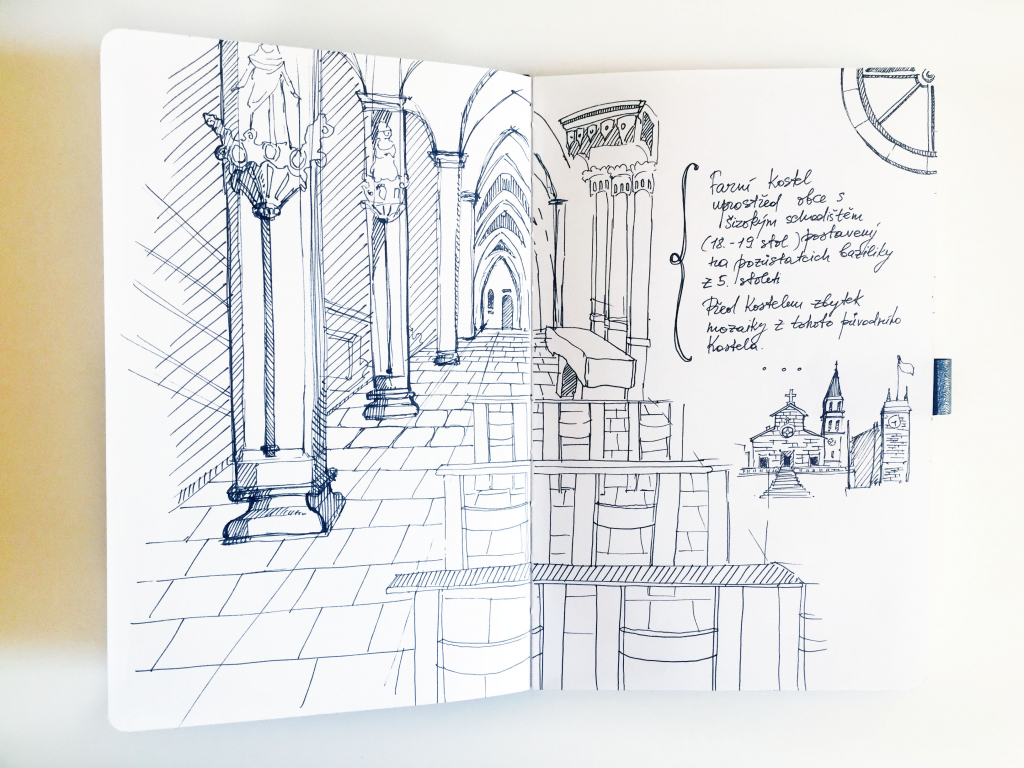 Farní kostel
uprostřed obce s
širokým schodištěm
(18.-19. stol.) postavený
na pozůstatcích baziliky
z 5. století
Před kostelem zbytek
mozaiky z tohoto původního
kostela.